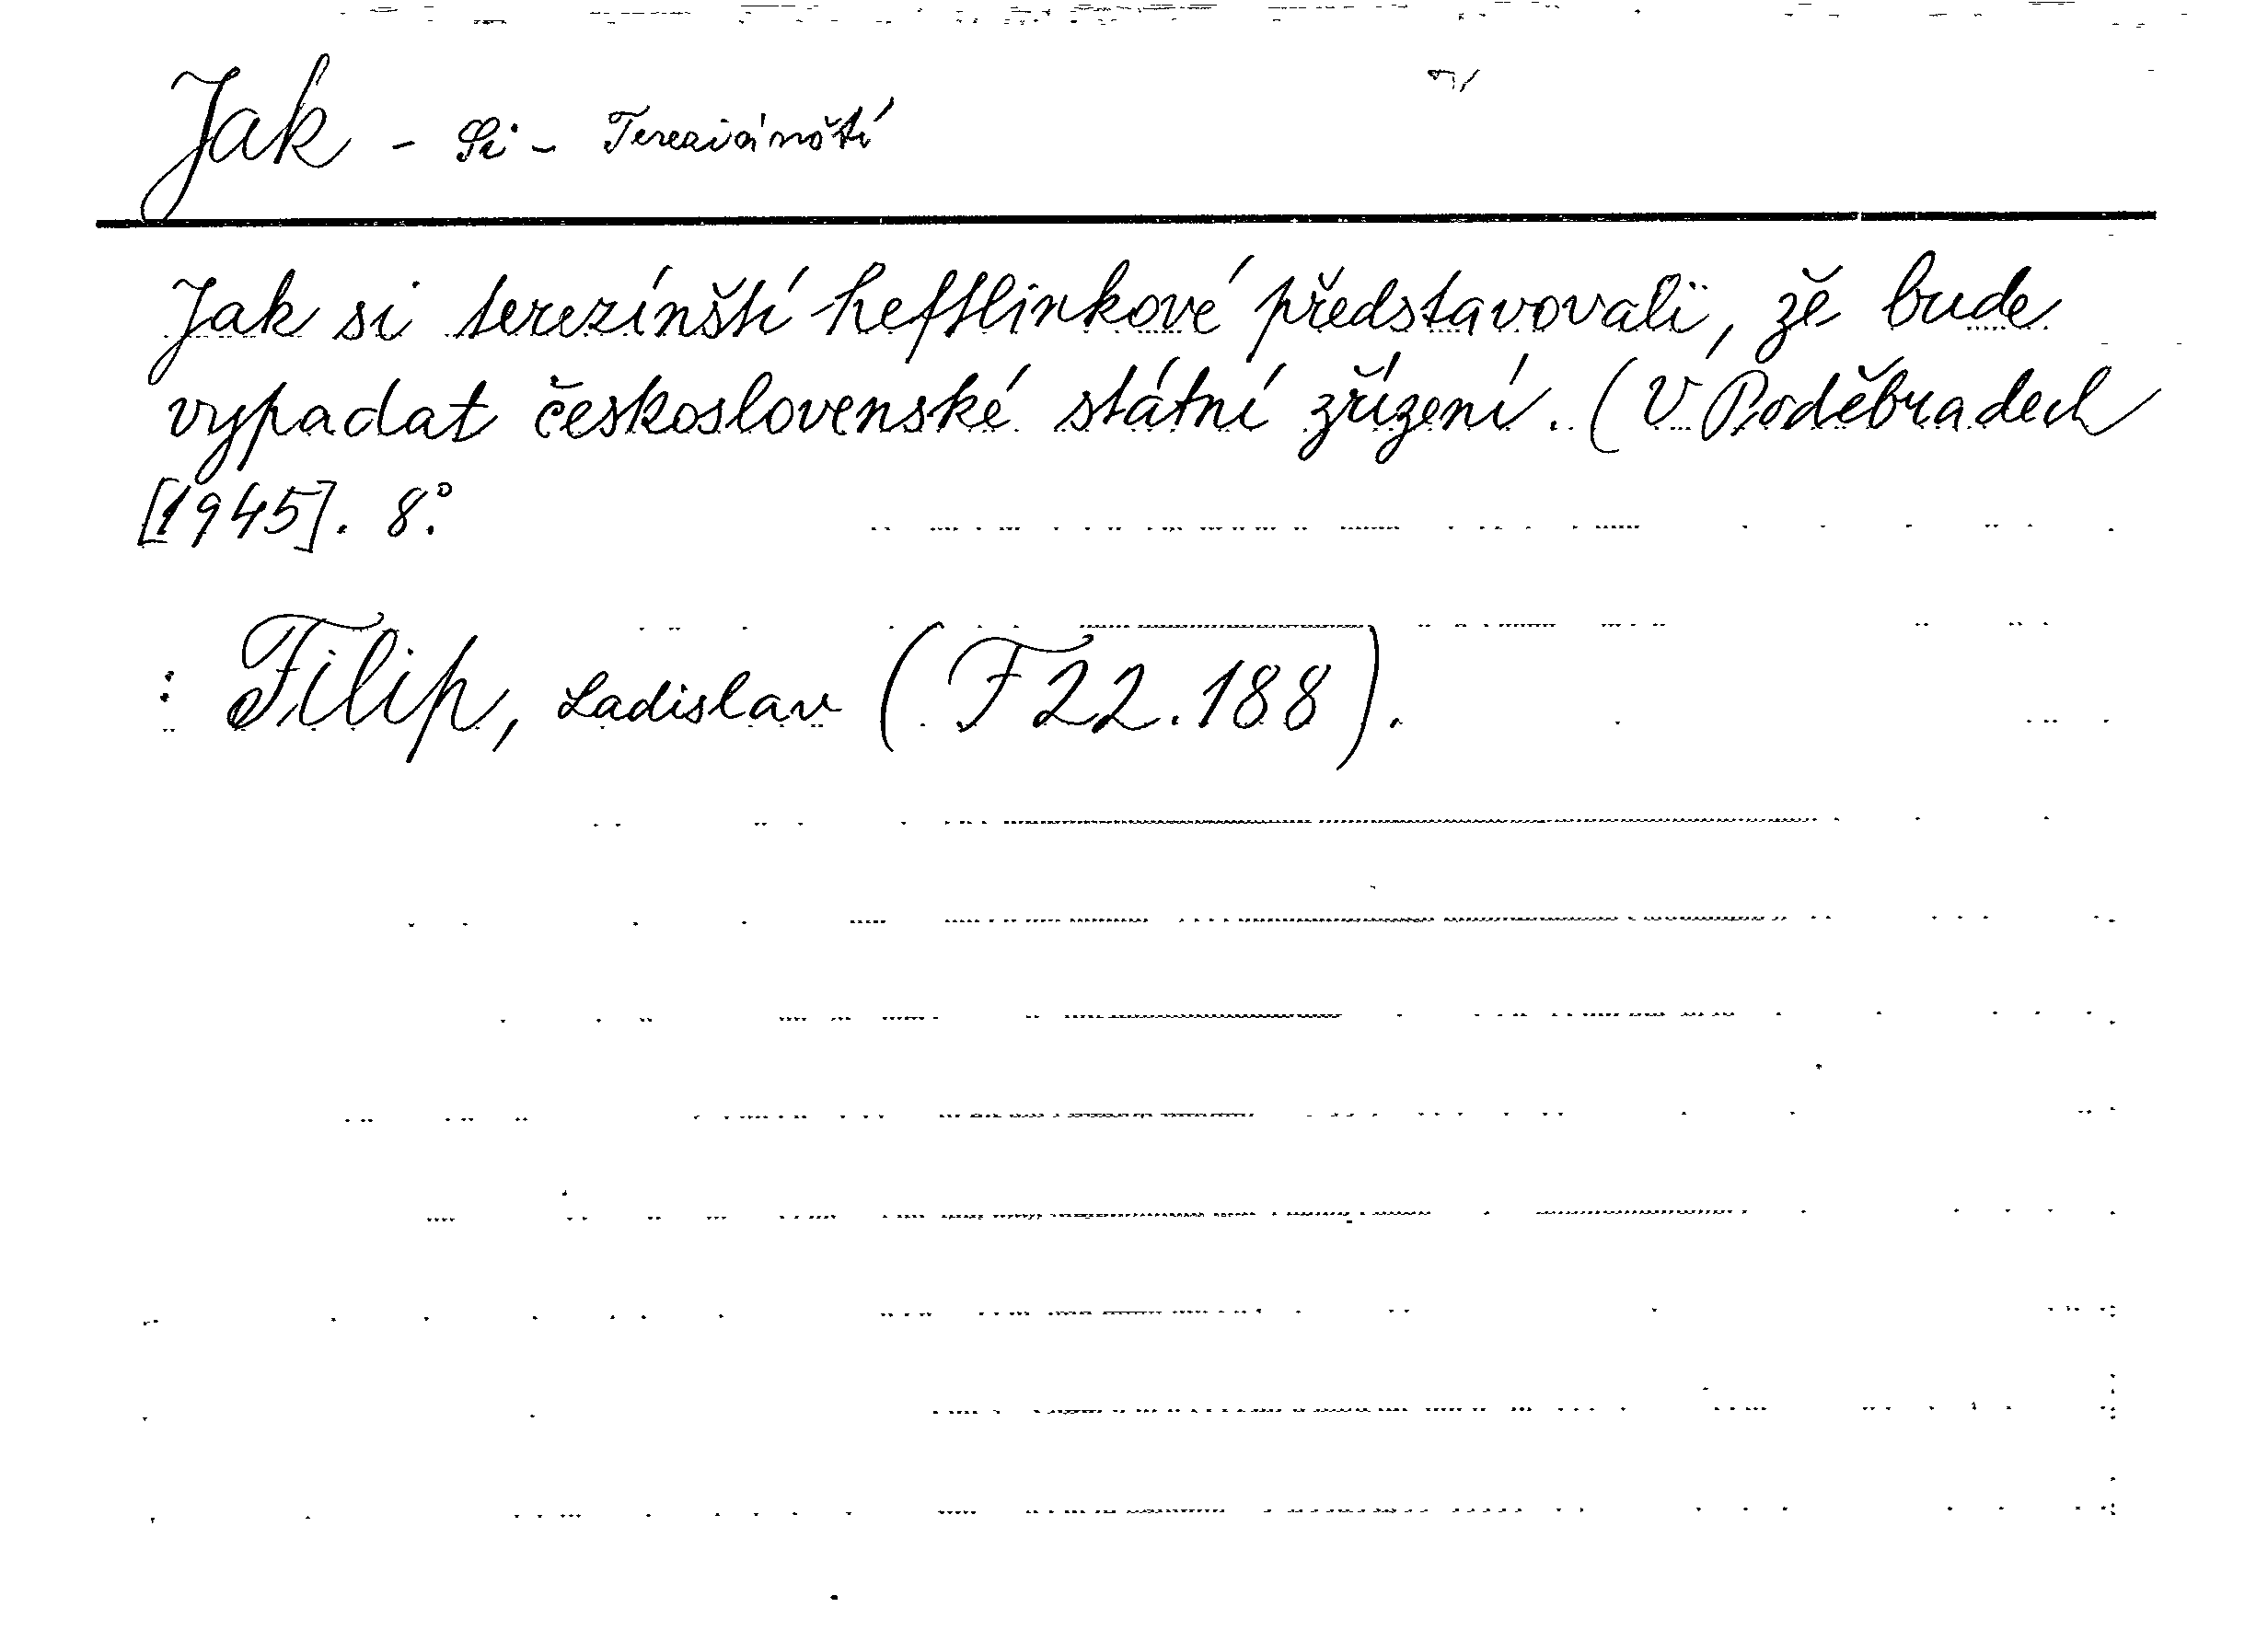 Jak - Si - Tereziánští
Jak si terezínští heftlinkové představovali, že bude
vypadat československé státní zřízení. (V Poděbradech
[1945]. 8°.
: Filip, Ladislav (F 22.188).